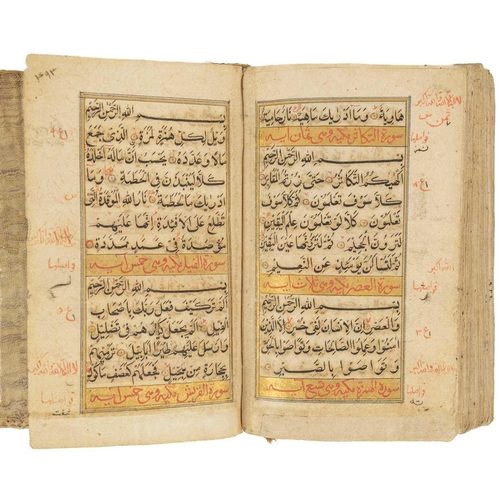 هاوية وما ادريك ماهيه نار حامية
سورة التكاثر مكية وهي ثمان اية
بسم الله الرحمن الرحيم
الهيكم التكاثر حتى زرتم المقابر
كلا سوف تعلمون ثم كلا سوف
تعلمون كلا لو تعلمون علم اليقين
لترون الجحيم ثم لترونها عين اليقين
ثم لتسئلن يومئذ عن النعيم
سورة العصر مكية وهي ثلاث اية
بسم الله الرحمن الرحيم
والعصر ان الانسان لفى خسر الا الذين
امنوا وعملوا الصالحات وتواصوا بالحق
وتواصوا بالصبر
سورة الهمزة مكية وهي تسع اية
بسم الله الرحمن الرحيم
ويل لكل همزة لمزة الذى جمع
مالا وعدده يحسب ان ماله اخلده
كلا لينبذن فى الحطمة
الحطمة نار الله الموقدة التى
تطلع على الافئدة انها عليهم
مؤصدة فى عمد ممددة
سورة الفيل مكية وهي خمس اية
بسم الله الرحمن الرحيم
الم تر كيف فعل ربك باصحاب
الفيل الم يجعل كيدهم فى تضليل
وارسل عليهم طيرا ابابيل ترميهم
بحجارة من سجيل فجعلهم كعصف ماكول
سورة القريش مكية وهي خمس اية